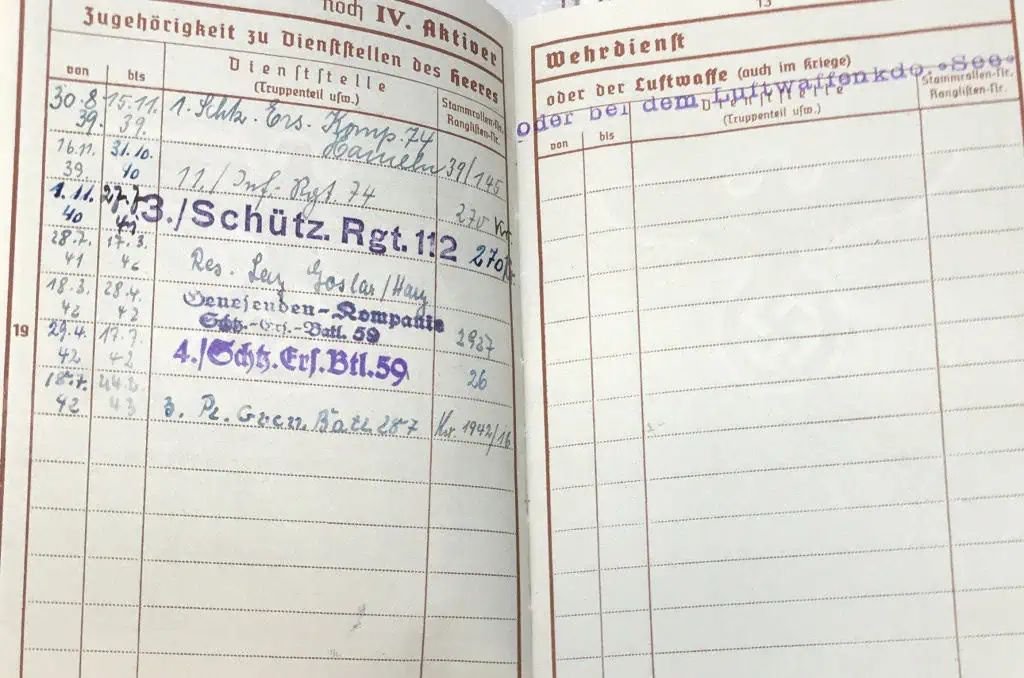 noch IV. Aktiver
Zugehörigkeit zu Dienststellen des Heeres
von bis Dienststelle
(Truppenteil usw.) Stammrollen-Nr.
Ranglisten-Nr.
30.8. 15.11. 1. Schtz. Ers. Komp. 74
39. 39. Hameln 39/145
16.11. 31.10.
39. 40 11./Inf.-Rgt. 74 270
1.11. 27.7.
40 41 3./Schütz. Rgt. 112 270
28.7. 17.3. Res. Laz Goslar/Harz
41 42
18.3. 28.4. Genesenden-Kompanie
42 42 Schtz.-Ers.-Batl. 59 2927
19
29.4. 17.7. 4./Schtz.Ers.Btl.59
42 42 26
18.7.
42 43 3. Pz. Gren. Batl. 287 1942/16
13
Wehrdienst
oder der Luftwaffe (auch im Kriege)
oder bei dem Luftwaffenkdo. »See«
von bis Dienststelle
(Truppenteil usw.) Stammrollen-Nr.
Ranglisten-Nr.